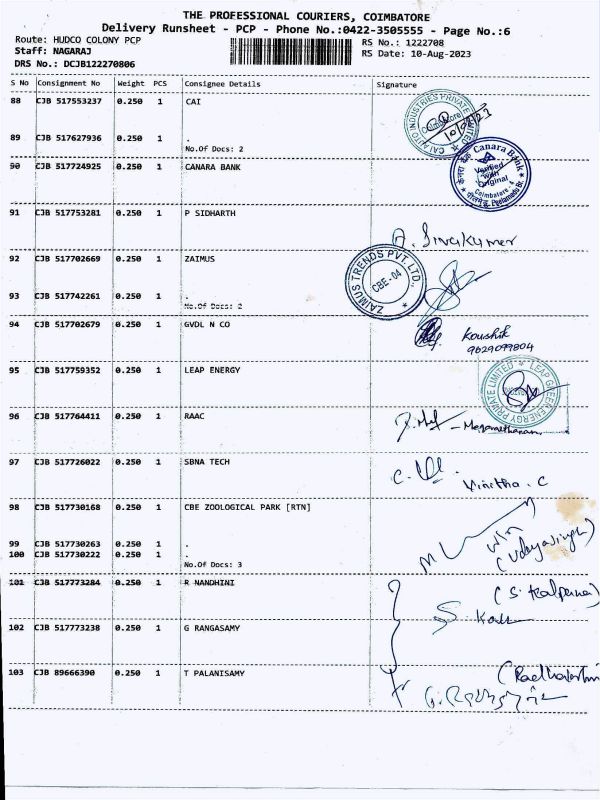 THE PROFESSIONAL COURIERS, COIMBATORE
Delivery Runsheet - PCP - Phone No.:0422-3505555 - Page No.:6
Route: HUDCO COLONY PCP RS No.: 1222708
Staff: NAGARAJ RS Date: 10-Aug-2023
DRS No.: DCJB122270806
S No Consignment No Weight PCS Consignee Details Signature
88 CJB 517553237 0.250 1 CAI
89 CJB 517627936 0.250 1 .
No.Of Docs: 2
90 CJB 517724925 0.250 1 CANARA BANK
Canara Bank
Verified with Original
Coimbatore
91 CJB 517753281 0.250 1 P SIDHARTH
A. Sivakumar
92 CJB 517702669 0.250 1 ZAIMUS
ZAIMUS TRENDS PVT. LTD.,
CBE-04
93 CJB 517742261 0.250 1 .
No.Of Docs: 2
94 CJB 517702679 0.250 1 GVDL N CO
Koushik
9629099804
95 CJB 517759352 0.250 1 LEAP ENERGY
LEAP GREEN ENERGY PRIVATE LIMITED
96 CJB 517764411 0.250 1 RAAC
97 CJB 517726022 0.250 1 SBNA TECH
Vinitha. C
98 CJB 517730168 0.250 1 CBE ZOOLOGICAL PARK [RTN]
99 CJB 517730263 0.250 1 .
100 CJB 517730222 0.250 1 .
No.Of Docs: 3
101 CJB 517773284 0.250 1 R NANDHINI
102 CJB 517773238 0.250 1 G RANGASAMY
103 CJB 89666390 0.250 1 T PALANISAMY